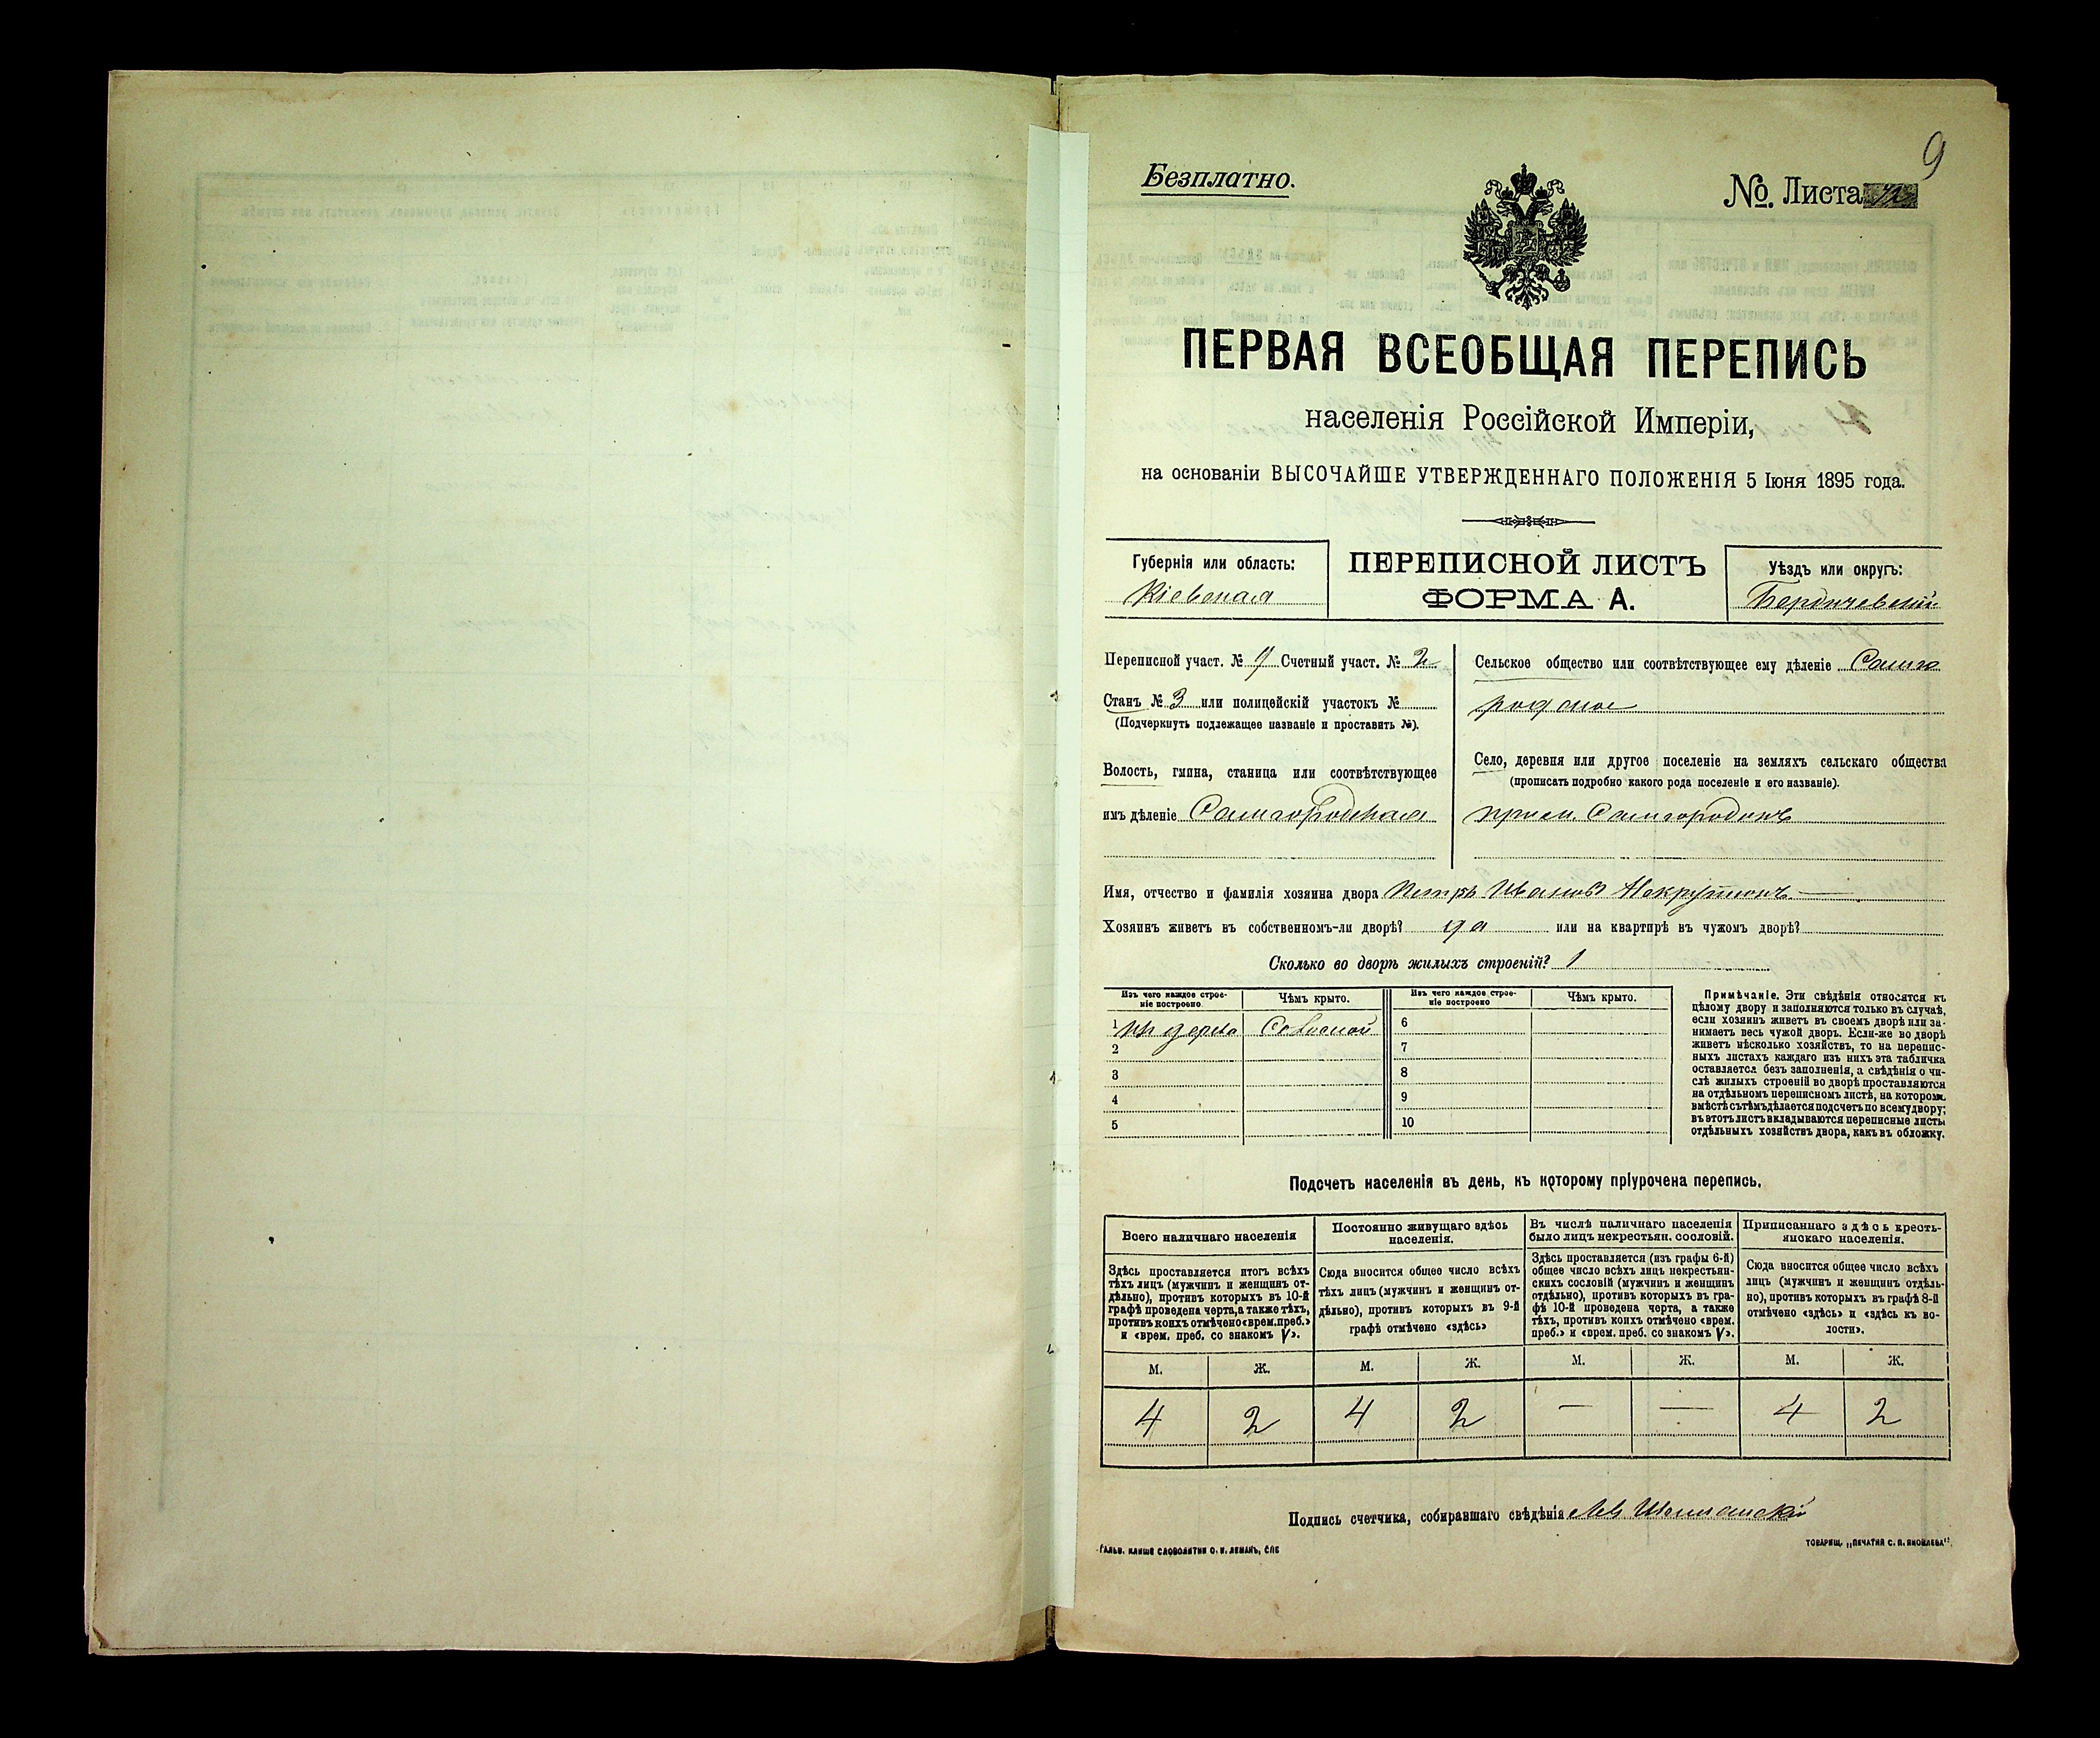 9
Безплатно.
№. Листа
ПЕРВАЯ ВСЕОБЩАЯ ПЕРЕПИСЬ
населенія Россійской Имперіи,
на основаніи ВЫСОЧАЙШЕ УТВЕРЖДЕННАГО ПОЛОЖЕНІЯ 5 Іюня 1895 года.
Губернія или область:
Кіевская
ПЕРЕПИСНОЙ ЛИСТЪ
ФОРМА А.
Уѣздъ или округъ:
Бердичевскій
Переписной участ. № 9 Счетный участ. № 2
Станъ № 3 или полицейскій участокъ №
(Подчеркнуть подлежащее названіе и проставить №).
Волость, гмина, станица или соотвѣтствующее
имъ дѣленіе Самгородская
Сельское общество или соотвѣтствующее ему дѣленіе Самго
родское
Село, деревня или другое поселеніе на земляхъ сельскаго общества
(прописать подробно какого рода поселеніе и его названіе).
Самгородокъ
Имя, отчество и фамилія хозяина двора Петръ Ивановъ Некрутюкъ
Хозяинъ живетъ въ собственномъ-ли дворѣ? да или на квартирѣ въ чужомъ дворѣ?
Сколько во дворѣ жилыхъ строеній? 1
Изъ чего каждое строе-
ніе построено
Чѣмъ крыто.
1 изъ дерева Соломой
2
3
4
5
Изъ чего каждое строе-
ніе построено
Чѣмъ крыто.
6
7
8
9
10
Примѣчаніе. Эти свѣдѣнія относятся къ
цѣлому двору и заполняются только въ случаѣ,
если хозяинъ живетъ въ своемъ дворѣ или за-
нимаетъ весь чужой дворъ. Если-же во дворѣ
живетъ нѣсколько хозяйствъ, то на перепис-
ныхъ листахъ каждаго изъ нихъ эта табличка
оставляется безъ заполненія, а свѣдѣнія о чи-
слѣ жилыхъ строеній во дворѣ проставляются
на отдѣльномъ переписномъ листѣ, на которомъ
вмѣстѣ съ тѣмъ дѣлается подсчетъ по всему двору;
въ этотъ листъ вкладываются переписные листы
отдѣльныхъ хозяйствъ двора, какъ въ обложку.
Подсчетъ населенія въ день, къ которому пріурочена перепись.
Всего наличнаго населенія
Здѣсь проставляется итогъ всѣхъ
тѣхъ лицъ (мужчинъ и женщинъ от-
дѣльно), противъ которыхъ въ 10-й
графѣ проведена черта, а также тѣхъ,
противъ коихъ отмѣчено «врем. преб.»
и «врем. преб. со знакомъ V».
М. Ж.
4 2
Постоянно живущаго здѣсь
населенія.
Сюда вносится общее число всѣхъ
тѣхъ лицъ (мужчинъ и женщинъ от-
дѣльно), противъ которыхъ въ 9-й
графѣ отмѣчено «здѣсь»
М. Ж.
4 2
Въ числѣ наличнаго населенія
было лицъ некрестьян. сословій.
Здѣсь проставляется (изъ графы 6-й)
общее число всѣхъ лицъ некрестьян-
скихъ сословій (мужчинъ и женщинъ
отдѣльно), противъ которыхъ въ гра-
фѣ 10-й проведена черта, а также
тѣхъ, противъ коихъ отмѣчено «врем.
преб.» и «врем. преб. со знакомъ V».
М. Ж.
— —
Приписаннаго здѣсь кресть-
янскаго населенія.
Сюда вносится общее число всѣхъ
лицъ (мужчинъ и женщинъ отдѣль-
но), противъ которыхъ въ графѣ 8-й
отмѣчено «здѣсь» и «здѣсь къ во-
лости».
М. Ж.
4 2
Подпись счетчика, собиравшаго свѣдѣнія
ГАЛЬВ. КЛИШЕ СЛОВОЛИТНИ О. И. ЛЕМАНЪ, СПБ
ТОВАРИЩ. „ПЕЧАТНЯ С. П. ЯКОВЛЕВА".